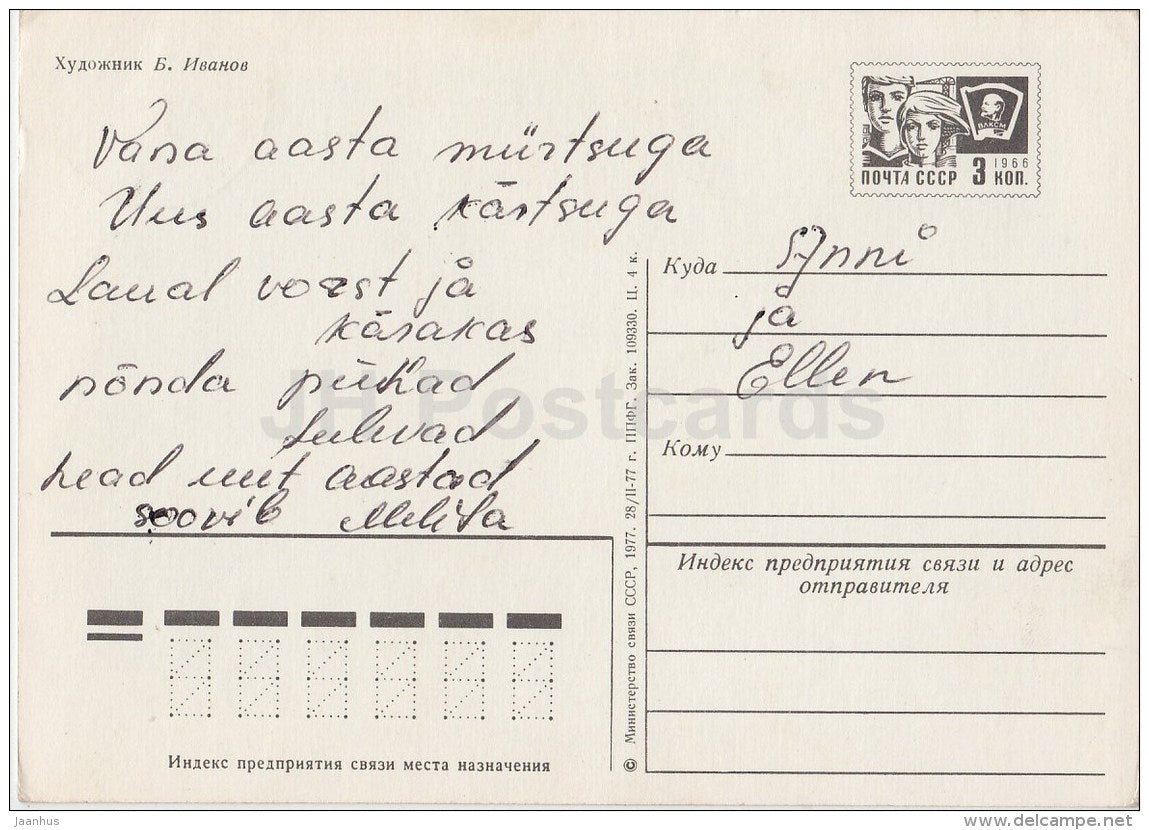 Художник Б. Иванов
Vana aasta mürtsuga
Uus aasta kärtsuga
Laual vorst ja
kärakas
nõnda pühad
tulevad
head uut aastad
soovib
ПОЧТА СССР 3 КОП.
1966
ВЛКСМ
Куда Anni
ja
Ellen
Кому
Индекс предприятия связи и адрес
отправителя
Индекс предприятия связи места назначения
© Министерство связи СССР, 1977. 28/II-77 г. ППФГ. Зак. 109330. Ц. 4 к.
JH Postcards
jaanhus
delcampe.net